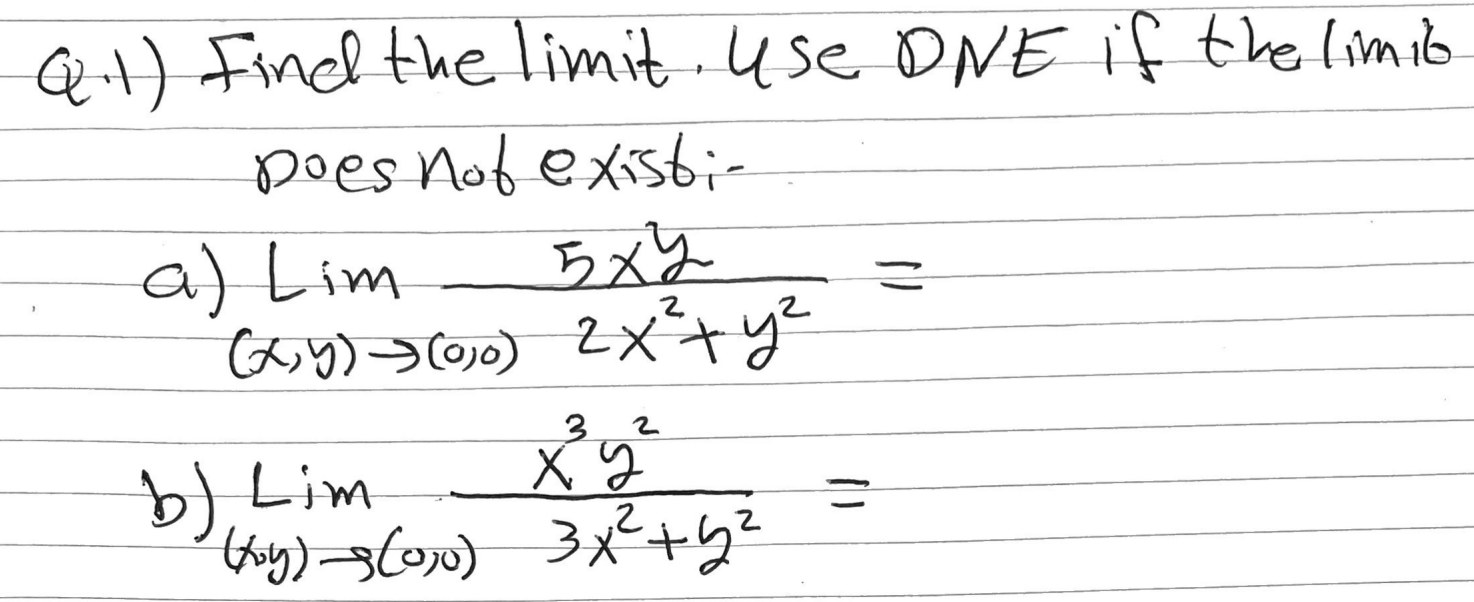 Q.1) Find the limit. Use DNE if the limit
Does not exist:-
a) Lim 5xy / 2x²+y² =
(x,y)→(0,0)
b) Lim x³y² / 3x²+y² =
(x,y)→(0,0)